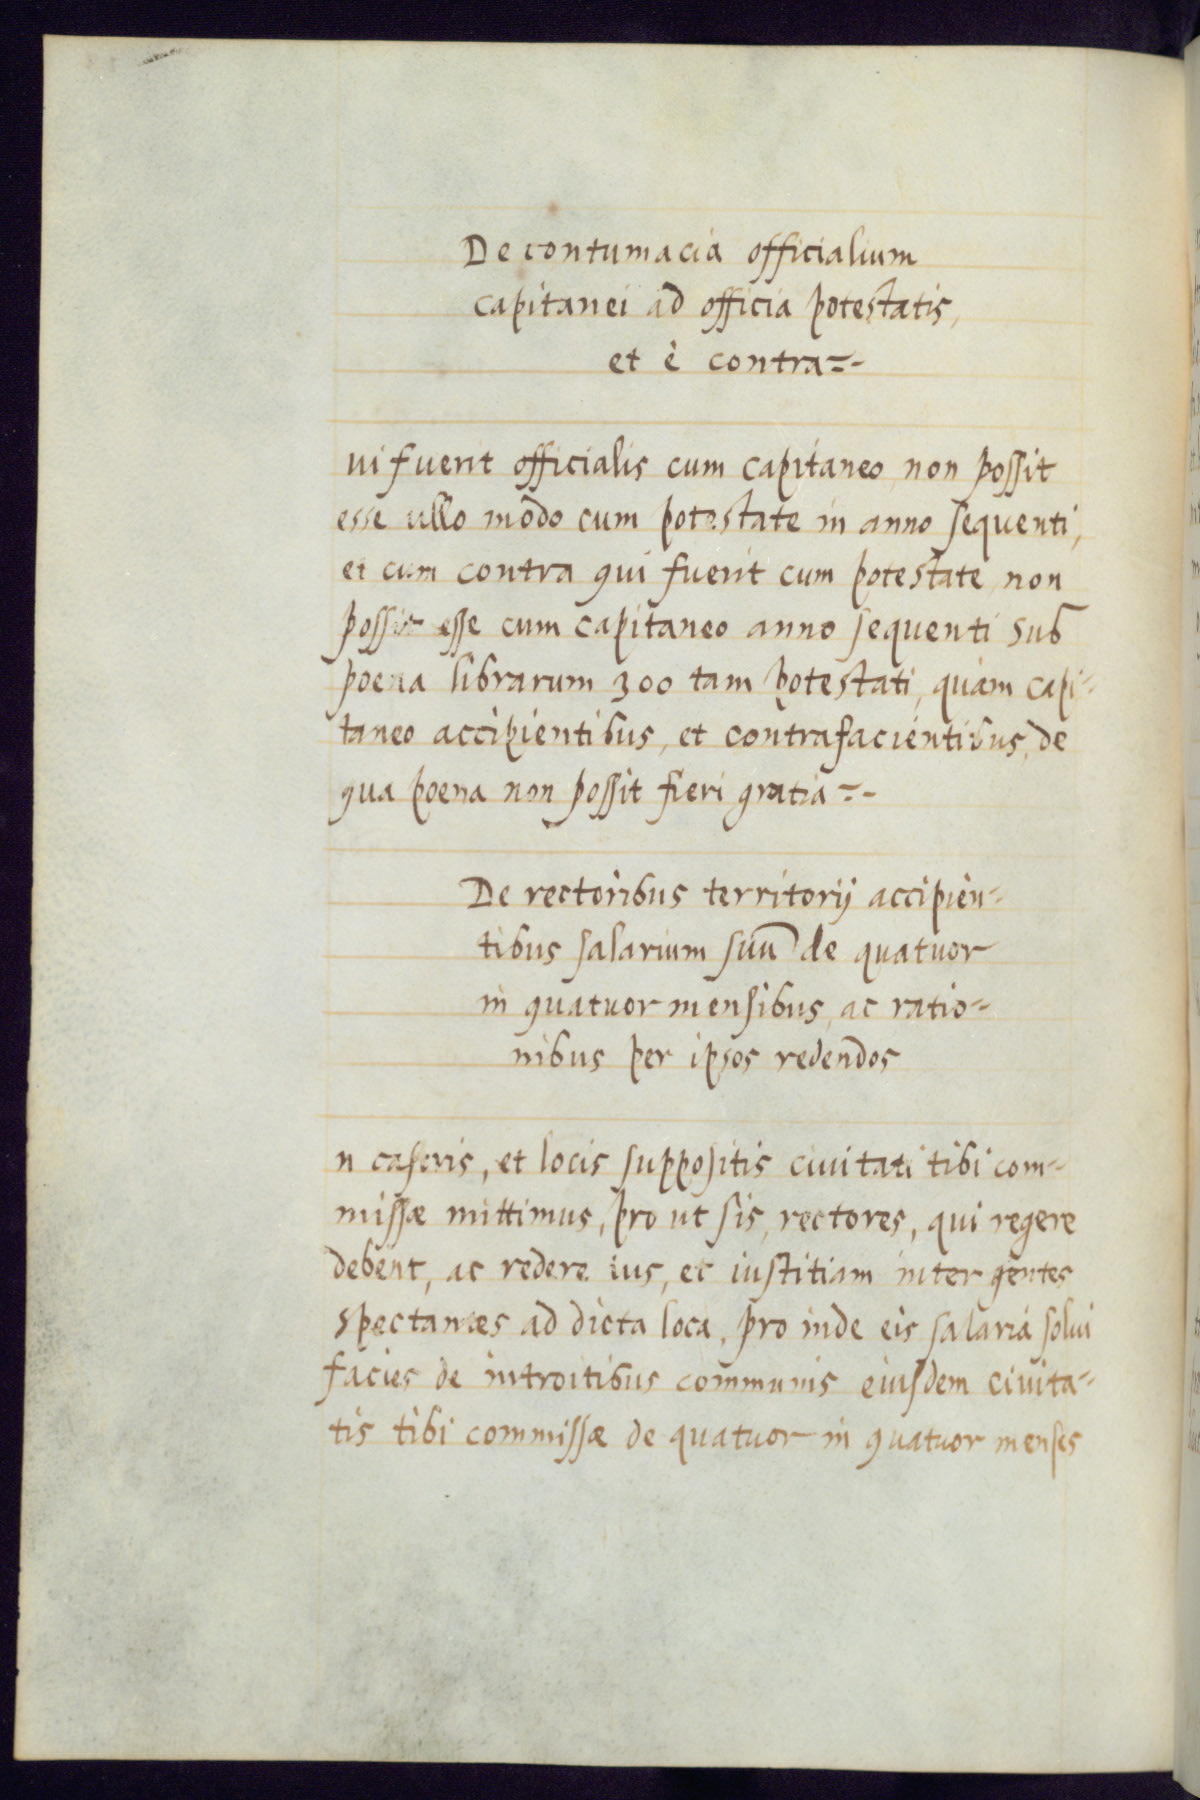 De contumacia officialium
capitanei ad officia potestatis,
et è contra=-
ui fuerit officialis cum capitaneo, non possit
esse ullo modo cum potestate in anno sequenti,
et cum contra qui fuerit cum potestate, non
possit esse cum capitaneo anno sequenti sub
poena librarum 300 tam potestati, quàm capi-
taneo accipientibus, et contrafacientibus, de
qua poena non possit fieri gratia=-
De rectoribus territorij accipien-
tibus salarium suū de quatuor
in quatuor mensibus, ac ratio-
nibus per ipsos redendos
n castris, et locis suppositis ciuitati tibi com-
missæ mittimus, pro ut sis, rectores, qui regere
debent, ac redere ius, et iustitiam inter gentes
spectantes ad dicta loca, pro inde eis salaria solui
facies de introitibus communis eiusdem ciuita-
tis tibi commissæ de quatuor in quatuor menses